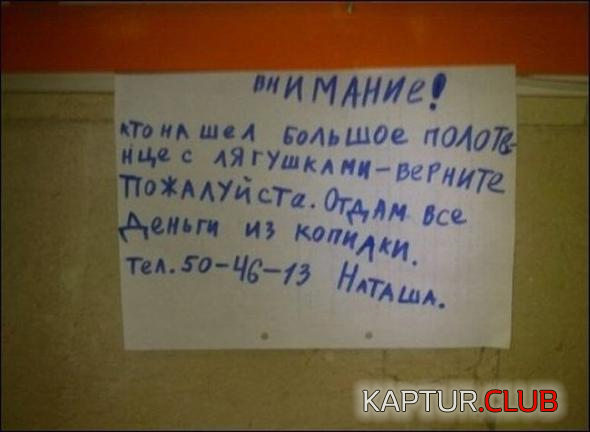 ВНИМАНИЕ!
КТО НА ШЕЛ БОЛЬШОЕ ПОЛОТЕ-
НЦЕ С ЛЯГУШКАМИ-ВЕРНИТЕ
ПОЖАЛУЙСТА. ОТДАМ ВСЕ
ДЕНЬГИ ИЗ КОПИЛКИ.
ТЕЛ. 50-46-13 НАТАША.
KAPTUR.CLUB